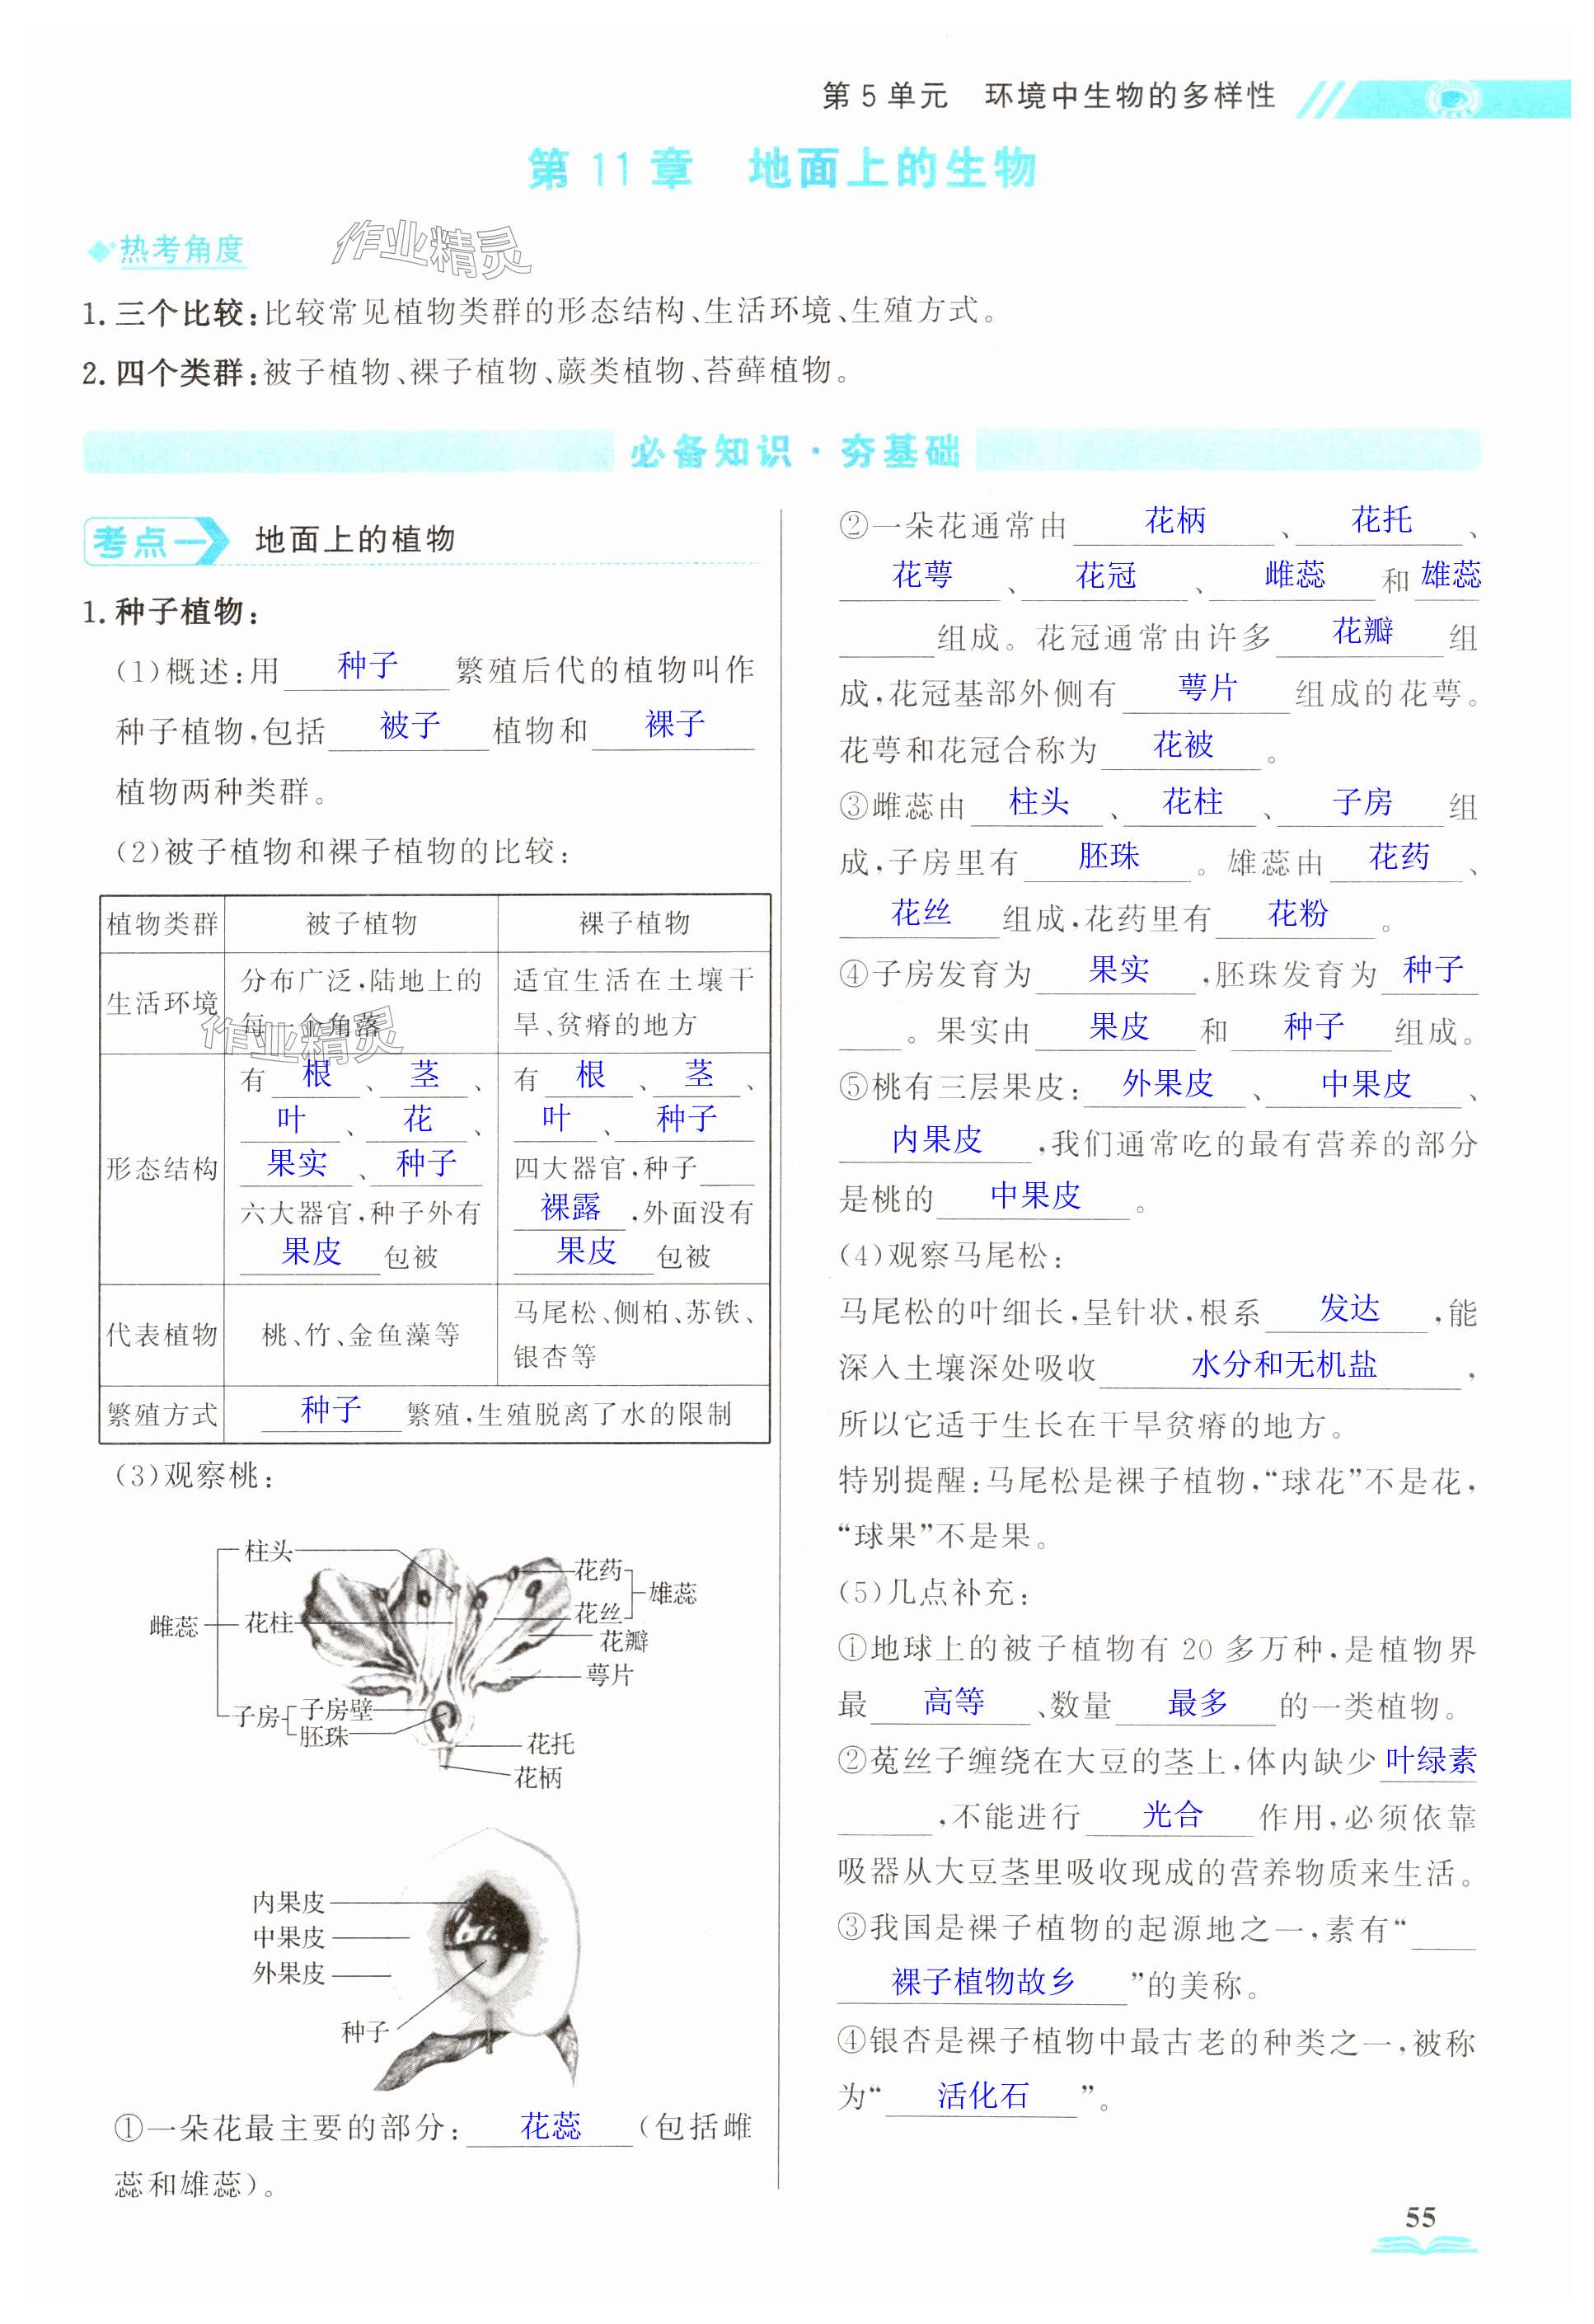 第5单元 环境中生物的多样性
第11章 地面上的生物
热考角度
作业精灵
1. 三个比较:比较常见植物类群的形态结构、生活环境、生殖方式。
2. 四个类群:被子植物、裸子植物、蕨类植物、苔藓植物。
必备知识·夯基础
考点一 地面上的植物
1. 种子植物:
(1)概述:用 种子 繁殖后代的植物叫作
种子植物,包括 被子 植物和 裸子
植物两种类群。
(2)被子植物和裸子植物的比较:
植物类群 被子植物 裸子植物
生活环境 分布广泛,陆地上的每一个角落 适宜生活在土壤干旱、贫瘠的地方
作业精灵
形态结构
有 根 、 茎 、
叶 、 花 、
果实 、 种子
六大器官,种子外有
果皮 包被
有 根 、 茎 、
叶 、 种子
四大器官,种子
裸露 ,外面没有
果皮 包被
代表植物 桃、竹、金鱼藻等 马尾松、侧柏、苏铁、银杏等
繁殖方式 种子 繁殖,生殖脱离了水的限制
(3)观察桃:
柱头
花药
雄蕊
花柱
花丝
雌蕊
花瓣
萼片
子房
子房壁
胚珠
花托
花柄
内果皮
中果皮
外果皮
种子
①一朵花最主要的部分: 花蕊 (包括雌
蕊和雄蕊)。
②一朵花通常由 花柄 、 花托 、
花萼 、 花冠 、 雌蕊 和 雄蕊
组成。花冠通常由许多 花瓣 组
成,花冠基部外侧有 萼片 组成的花萼。
花萼和花冠合称为 花被 。
③雌蕊由 柱头 、 花柱 、 子房 组
成,子房里有 胚珠 。雄蕊由 花药 、
花丝 组成,花药里有 花粉 。
④子房发育为 果实 ,胚珠发育为 种子
。果实由 果皮 和 种子 组成。
⑤桃有三层果皮: 外果皮 、 中果皮 、
内果皮 ,我们通常吃的最有营养的部分
是桃的 中果皮 。
(4)观察马尾松:
马尾松的叶细长,呈针状,根系 发达 ,能
深入土壤深处吸收 水分和无机盐 ,
所以它适于生长在干旱贫瘠的地方。
特别提醒:马尾松是裸子植物,“球花”不是花,
“球果”不是果。
(5)几点补充:
①地球上的被子植物有 20 多万种,是植物界
最 高等 、数量 最多 的一类植物。
②菟丝子缠绕在大豆的茎上,体内缺少 叶绿素
,不能进行 光合 作用,必须依靠
吸器从大豆茎里吸收现成的营养物质来生活。
③我国是裸子植物的起源地之一,素有“
裸子植物故乡 ”的美称。
④银杏是裸子植物中最古老的种类之一,被称
为“ 活化石 ”。
55